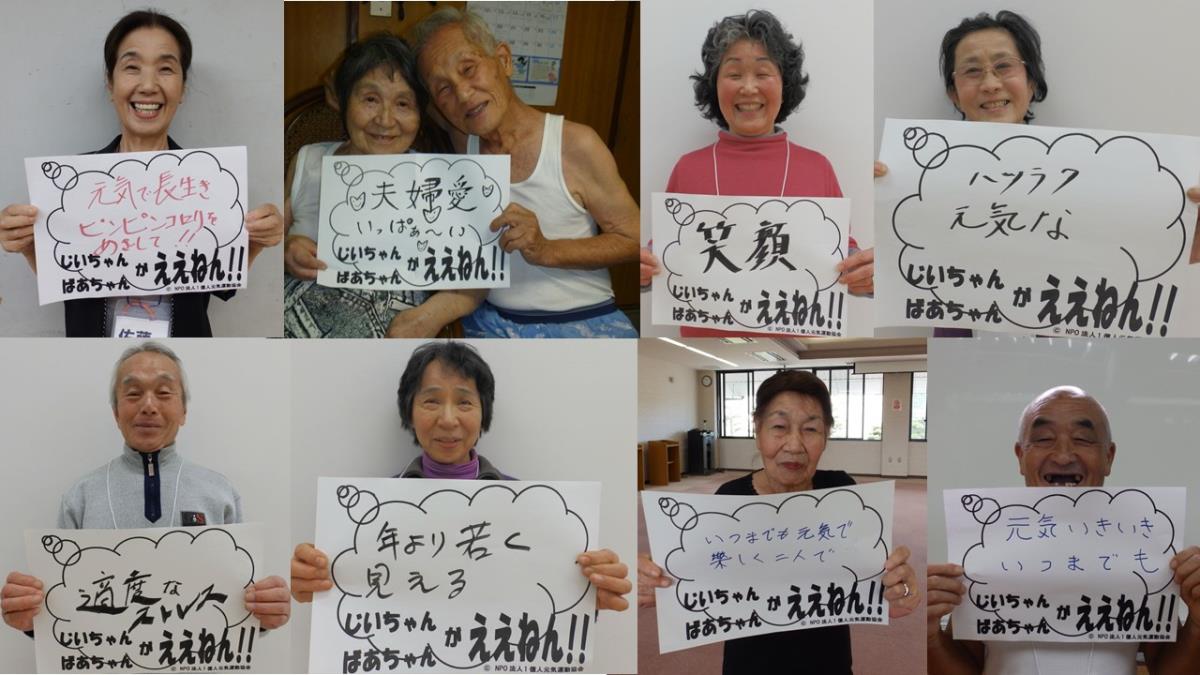 元気で長生き
ピンピンコロリを
めざして!!
じいちゃん
ばあちゃん
が ええねん!!
© NPO 法人1億人元気運動協会
佐藤
夫婦愛
いっぱぁ〜い
じいちゃん
ばあちゃん
が ええねん!!
笑顔
じいちゃん
ばあちゃん
が ええねん!!
© NPO 法人1億人元気運動協会
ハツラツ
元気な
じいちゃん
ばあちゃん
が ええねん!!
© NPO 法人1億人元気運動協会
適度な
ストレス
じいちゃん
ばあちゃん
が ええねん!!
年より若く
見える
じいちゃん
ばあちゃん
が ええねん!!
© NPO 法人1億人元気運動協会
いつまでも元気で
楽しく二人で
じいちゃん
ばあちゃん
が ええねん!!
© NPO 法人1億人元気運動協会
元気いきいき
いつまでも
じいちゃん
ばあちゃん
が ええねん!!
© NPO 法人1億人元気運動協会